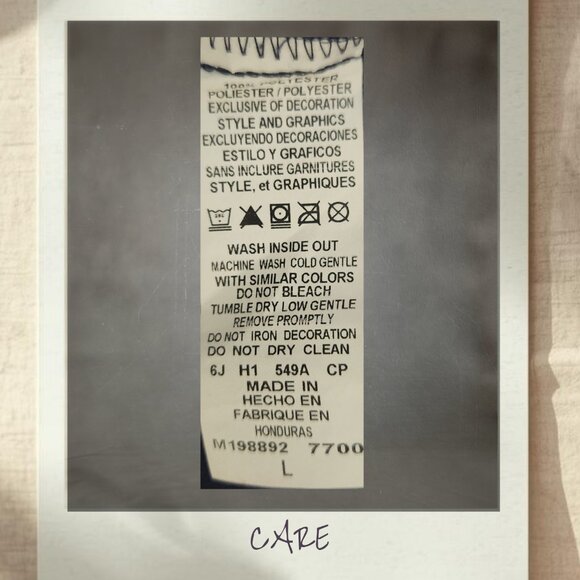 100% POLYESTER
POLIESTER / POLYESTER
EXCLUSIVE OF DECORATION
STYLE AND GRAPHICS
EXCLUYENDO DECORACIONES
ESTILO Y GRAFICOS
SANS INCLURE GARNITURES
STYLE, et GRAPHIQUES
WASH INSIDE OUT
MACHINE WASH COLD GENTLE
WITH SIMILAR COLORS
DO NOT BLEACH
TUMBLE DRY LOW GENTLE
REMOVE PROMPTLY
DO NOT IRON DECORATION
DO NOT DRY CLEAN
6J H1 549A CP
MADE IN
HECHO EN
FABRIQUE EN
HONDURAS
M198892 7700
L
CARE